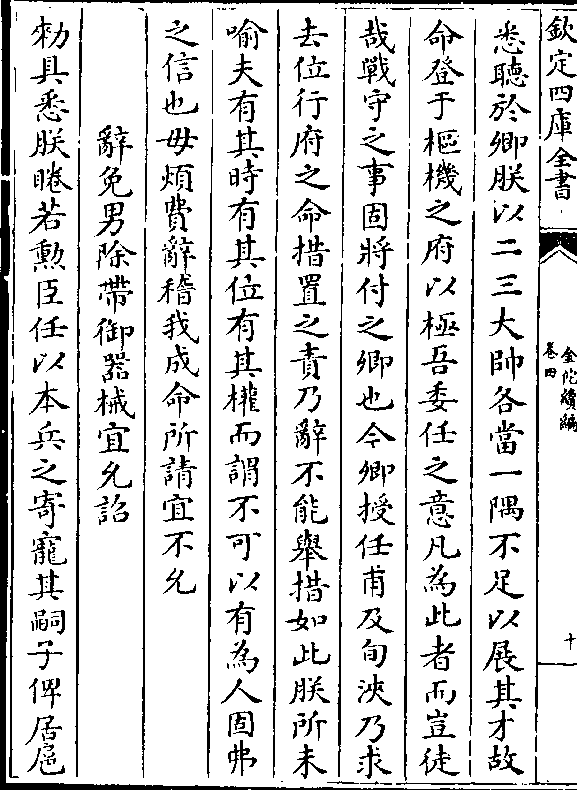 欽定四庫全書
金佗續編
卷四
十
悉聽於卿朕以二三大帥各當一隅不足以展其才故
命登于樞機之府以極吾委任之意凡為此者而豈徒
哉戰守之事固將付之卿也今卿授任甫及旬浹乃求
去位行府之命措置之責乃辭不能舉措如此朕所未
喻夫有其時有其位有其權而謂不可以有為人固弗
之信也毋煩費辭稽我成命所請宜不允
辭免男除帶御器械宜允詔
勑具悉朕睠若勲臣任以本兵之寄寵其嗣子俾居扈